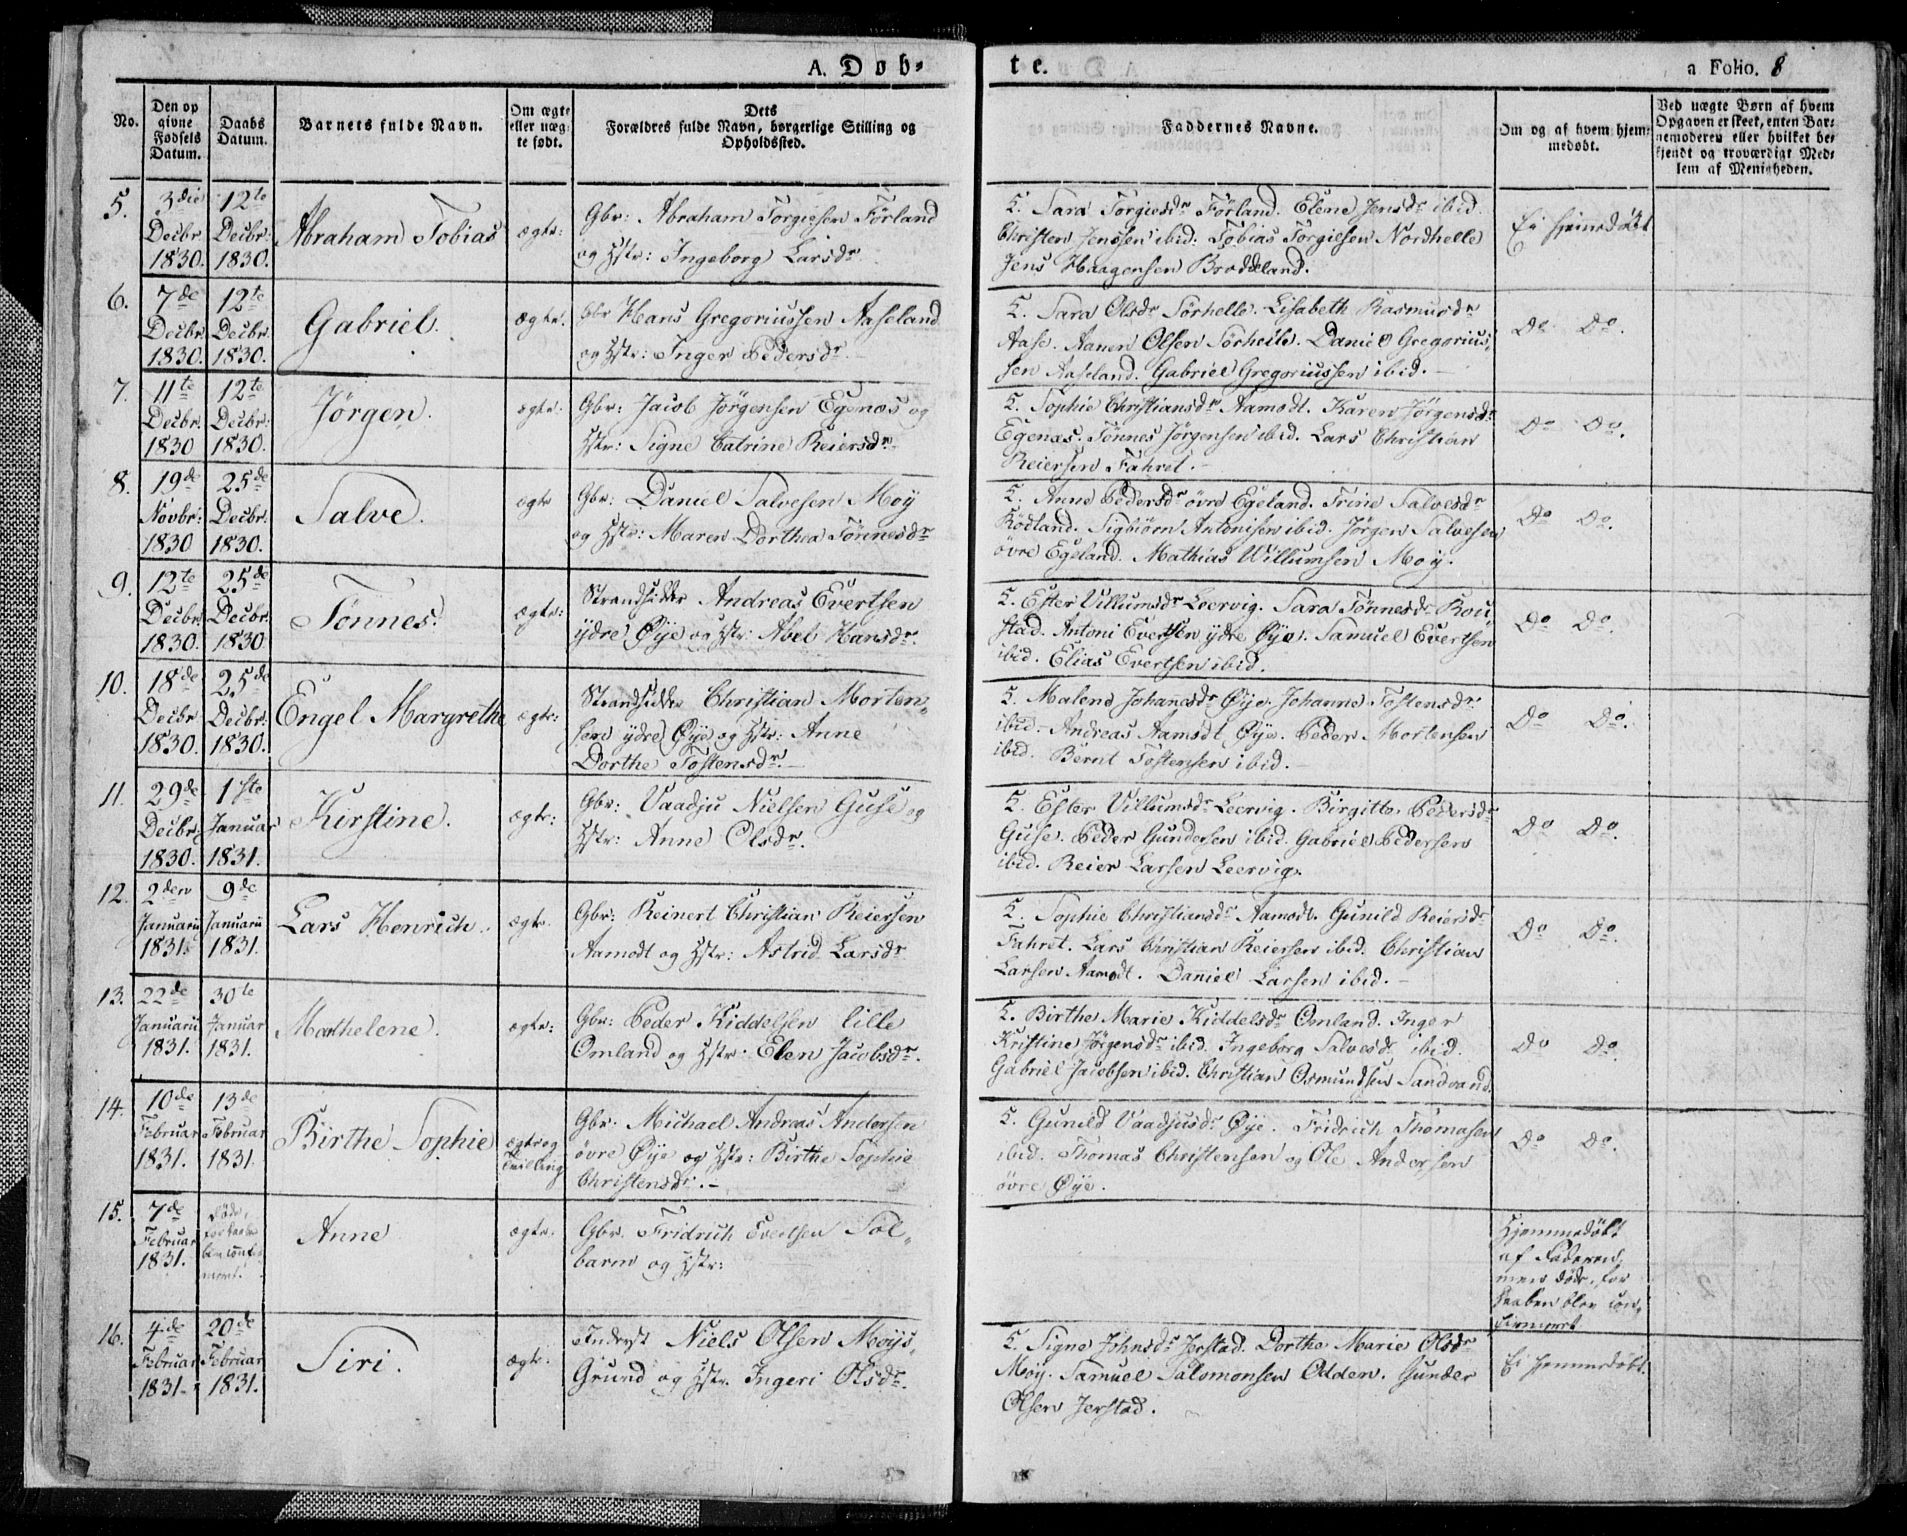 A. Døb-
te.
a Folio. 8
No.
Den op
givne
Fødsels
Datum.
Daabs
Datum.
Barnets fulde Navn.
Om ægte
eller uæg-
te født.
Dets
Forældres fulde Navn, borgerlige Stilling og
Opholdssted.
Faddernes Navne.
Om og af hvem hjem-
medøbt.
Ved uægte Børn af hvem
Opgaven er skeet, enten Bar-
nemoderen eller hvilket be-
kjendt og troværdigt Med-
lem af Menigheden.
5.
3die
Decbr
1830.
12te
Decbr:
1830.
Abraham Tobias
ægte:
Gbr: Abraham Torgiesen Førland
og Hstr: Ingeborg Larsdr
Sara Torgiesdr Førland. Elene Jensdr ibid.
Christen Jenssen ibid: Tobias Torgilsen Nordhelle
Jens Haagensen Broddeland.
Ei hjemedøbt
6.
7de
Decbr.
1830.
12te
Decbr.
1830.
Gabriel.
ægte.
Gbr Hans Gregoriussen Aaseland
og Hstr: Inger Pedersdr
Sara Olsdr Sørhelle. Lisabeth Rasmusdr
Aase. Aanen Olsen Sørhelle. Daniel Gregorius,
sen Aaseland. Gabriel Gregoriussen ibid. –
Do Do.
7.
11te
Decbr.
1830
12te
Decbr:
1830.
Jørgen.
ægte.
Gbr: Jacob Jørgensen Egenæs og
Hstr: Signe Catrine Reiersdr
Sophie Christiansdr Aamodt. Karen Jørgensdr
Egenæs. Tønnes Jørgensen ibid. Lars Christian
Reiersen Fahret. –
Do Do.
8.
19de
Novbr:
1830
25de
Decbr.
1830.
Salve.
ægte
Gbr: Daniel Salvesen Moy
og Hstr: Maren Dorthea Tønnesdr
Anne Pedersdr øvre Egeland. Trine Salvesdr
Rødland. Sigbiørn Antonisen ibid. Jørgen Salvesen
øvre Egeland. Mathias Willumsen Moy.
Do Do.
9.
12te
Decbr.
1830.
25de
Decbr.
1830
Tønnes.
ægte:
Strandsidder Andreas Evertsen
ydre Øye og Hstr: Abel Hansdr.
Ester Villumsdr Leervig. Sara Tønnesdr Rou,
stad. Antoni Evertsen ydre Øye. Samuel Evertsen
ibid. Elias Evertsen ibid.
Do Do.
10.
18de
Decbr
1830.
25de
Decbr.
1830.
Engel Margrethe
ægte:
Strandsidder Christian Morten,
sen ydre Øye og Hstr: Anne
Dorthe Tostensdr. –
Malene Johansdr Øye. Johanne Tostensdr
ibid. Andreas Aamodt Øye. Peder Mortensen
ibid. Bernt Tostensen ibid. –
Do Do.
11.
29de
Decbr.
1830.
1ste
Januar
1831.
Kirstine.
ægte:
Gbr: Vaadju Nielsen Guse og
Hstr: Anne Olsdr.
Ester Villumsdr Leervig. Birgitte Pedersdr
Guse. Peder Gundersen ibid. Gabriel Pedersen
ibid. Reier Larsen Leervig.
Do Do.
12.
2den
Januarii
1831.
9de
Januarii
1831.
Lars Henrich.
ægte.
Gbr: Reinert Christian Reiersen
Aamodt og Hstr: Astrid Larsdr
Sophie Christiansdr Aamodt. Gunild Reiersdr
Fahret. Lars Christian Reiersen ibid. Christian
Larsen Aamodt. Daniel Larsen ibid. –
Do Do.
13.
22de
Januarii
1831.
30te
Januar
1831.
Mathelene.
ægte:
Gbr: Peder Kiddelsen lille
Omland og Hstr: Elen Jacobsdr.
Birthe Marie Kiddelsdr Omland. Inger
Kristine Jørgensdr ibid. Ingeborg Salvesdr ibid.
Gabriel Jacobsen ibid. Christian Osmundsen Sandvand.
Do Do.
14.
10de
Februar
1831.
13de
Februar
1831.
Birthe Sophie
ægte og
Tvilling
Gbr: Michael Andreas Andersen
øvre Øye og Hstr: Birthe Sophie
Christensdr. –
Gunild Vaadjusdr Øye. Fridrich Thomasen
ibid. Thomas Christensen og Ole Andersen
øvre Øye.
Do Do.
15.
7de
Februar
1831.
Døde,
før daaben
blev confir
meret.
Anne
ægte.
Gbr. Fridrich Evertsen Sol,
barm og Hstr:
Hjemmedøbt
af Faderen,
men døde, før
Daaben blev con,
firmeret
16.
4de
Februar
1831.
20de
Februar
1831.
Siri.
ægte.
Inderst Niels Olsen Moys,
Grund og Hstr. Ingeri Olsdr.
Signe Johnsdr Jerstad. Dorthe Marie Olsdr
Moy. Samuel Salomonsen Odden. Gunder
Olsen Jerstad.
Ei hemmedøbt.